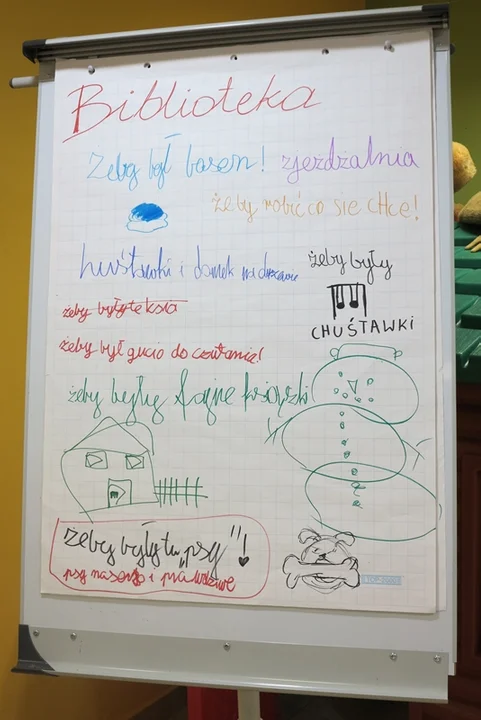 Biblioteka
Żeby był basen! zjeżdżalnia
żeby robić co sie chce!
huśtawki i domek na drzewie
żeby były
CHUŚTAWKI
żeby były te
żeby był gucio do czutania!
żeby byłyu fajne książki
żeby były tu "psy"!
psy na serio i prawdziwe